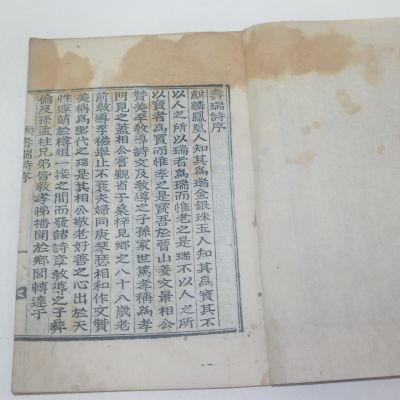 壽瑞詩序
麒麟鳳凰人知其爲瑞金銀珠玉人知其爲寶其不
以人之所以瑞者爲瑞而惟老之是瑞不以人之所
以寶者爲寶而惟孝之是寶吾於晉山姜文景相公
贊美李敎導詩文及敎導之子孫家世篤孝稱爲孝
門見之蓋相公嘗覲省于桑梓見鄕之八十八歲老
前敎導李 舉止不衰夫婦同庚琴瑟相和作文贊
美稱爲聖代之瑞是其相公敬老好善之心出於天
性寧萌於樽俎一接之間而發諸詩章敎導之子彛
倫及孫孟柱兄弟皆敦孝悌播聞於鄕閭轉達于
壽瑞詩序
一